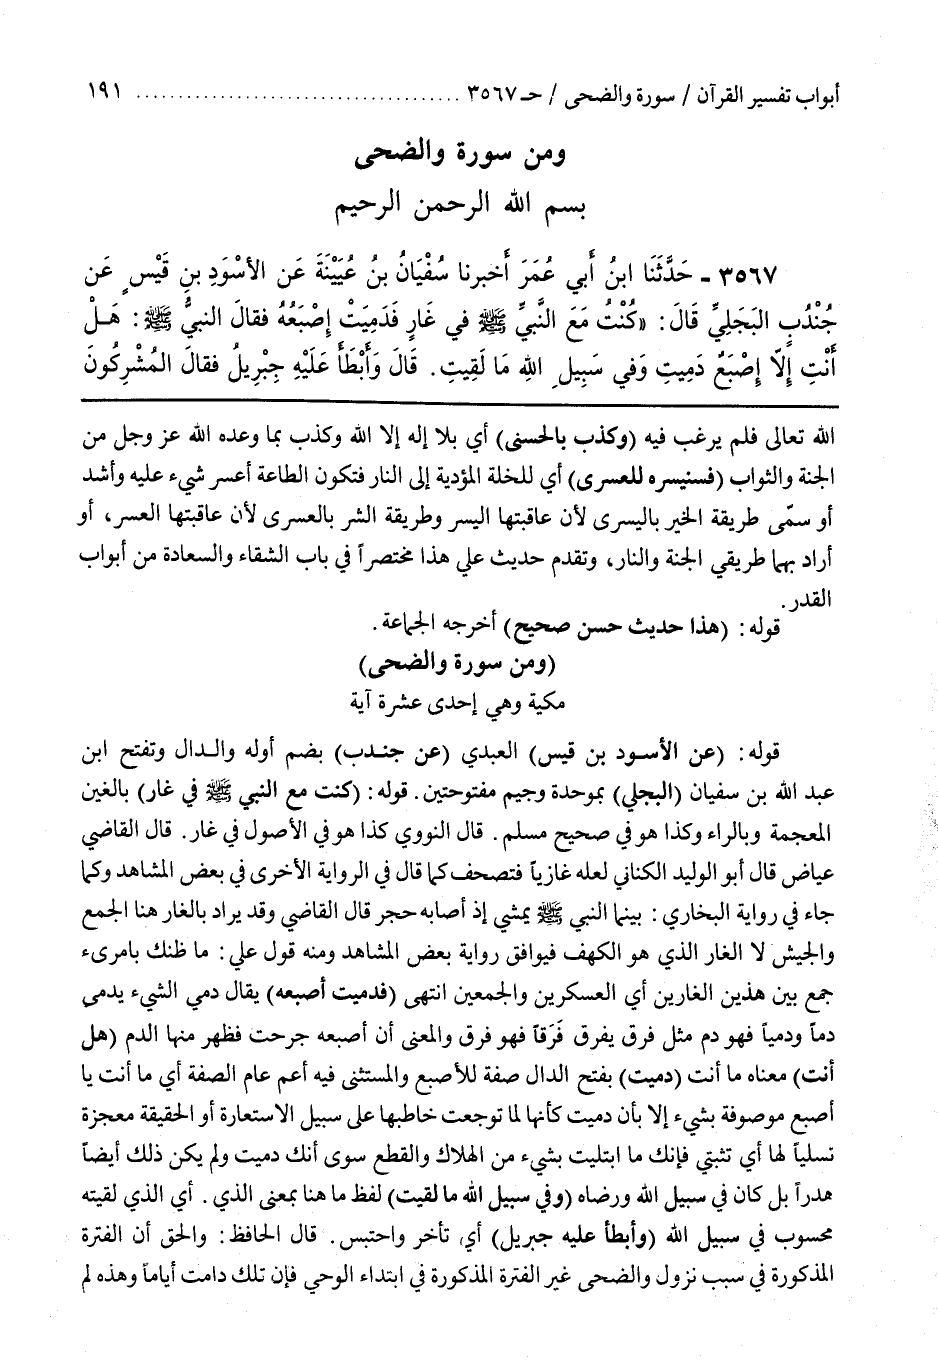 أبواب تفسير القرآن / سورة والضحى / حـ ٣٥٦٧ ..................................... ١٩١
ومن سورة والضحى
بسم الله الرحمن الرحيم
٣٥٦٧ ـ حَدَّثَنَا ابنُ أَبي عُمَرَ أَخبرنا سُفْيَانُ بنُ عُيَيْنَةَ عَن الأسْوَدِ بنِ قَيْسٍ عَن
جُنْدُبٍ البَجَلِيِّ قَالَ: «كُنْتُ مَعَ النَّبيِّ ﷺ في غَارٍ فَدَمِيَتْ إصْبَعُهُ فقالَ النبيُّ ﷺ: هَـلْ
أَنْتِ إلّا إصْبَعٌ دَمِيتِ وَفي سَبِيلِ اللهِ مَا لَقِيتِ. قَالَ وَأَبْطَأَ عَلَيْهِ جِبْرِيلُ فقالَ المُشْرِكُونَ
الله تعالى فلم يرغب فيه (وكذب بالحسنى) أي بلا إله إلا الله وكذب بما وعده الله عز وجل من
الجنة والثواب (فسنيسره للعسرى) أي للخلة المؤدية إلى النار فتكون الطاعة أعسر شيء عليه وأشد
أو سمّى طريقة الخير باليسرى لأن عاقبتها اليسر وطريقة الشر بالعسرى لأن عاقبتها العسر، أو
أراد بهما طريقي الجنة والنار، وتقدم حديث علي هذا مختصراً في باب الشقاء والسعادة من أبواب
القدر.
قوله: (هذا حديث حسن صحيح) أخرجه الجماعة.
(ومن سورة والضحى)
مكية وهي إحدى عشرة آية
قوله: (عن الأسـود بن قيس) العبدي (عن جنـدب) بضم أوله والـدال وتفتح ابن
عبد الله بن سفيان (البجلي) بموحدة وجيم مفتوحتين. قوله: (كنت مع النبي ﷺ في غار) بالغين
المعجمة وبالراء وكذا هو في صحيح مسلم. قال النووي كذا هو في الأصول في غار. قال القاضي
عياض قال أبو الوليد الكناني لعله غازياً فتصحف كما قال في الرواية الأخرى في بعض المشاهد وكما
جاء في رواية البخاري: بينما النبي ﷺ يمشي إذ أصابه حجر قال القاضي وقد يراد بالغار هنا الجمع
والجيش لا الغار الذي هو الكهف فيوافق رواية بعض المشاهد ومنه قول علي: ما ظنك بامرىء
جمع بين هذين الغارين أي العسكرين والجمعين انتهى (فدميت أصبعه) يقال دمي الشيء يدمى
دماً ودمياً فهو دم مثل فرق يفرق فَرَقاً فهو فرق والمعنى أن أصبعه جرحت فظهر منها الدم (هل
أنت) معناه ما أنت (دميت) بفتح الدال صفة للأصبع والمستثنى فيه أعم عام الصفة أي ما أنت يا
أصبع موصوفة بشيء إلا بأن دميت كأنها لما توجعت خاطبها على سبيل الاستعارة أو الحقيقة معجزة
تسلياً لها أي تثبتي فإنك ما ابتليت بشيء من الهلاك والقطع سوى أنك دميت ولم يكن ذلك أيضاً
هدراً بل كان في سبيل الله ورضاه (وفي سبيل الله ما لقيت) لفظ ما هنا بمعنى الذي. أي الذي لقيته
محسوب في سبيل الله (وأبطأ عليه جبريل) أي تأخر واحتبس. قال الحافظ: والحق أن الفترة
المذكورة في سبب نزول والضحى غير الفترة المذكورة في ابتداء الوحي فإن تلك دامت أياماً وهذه لم